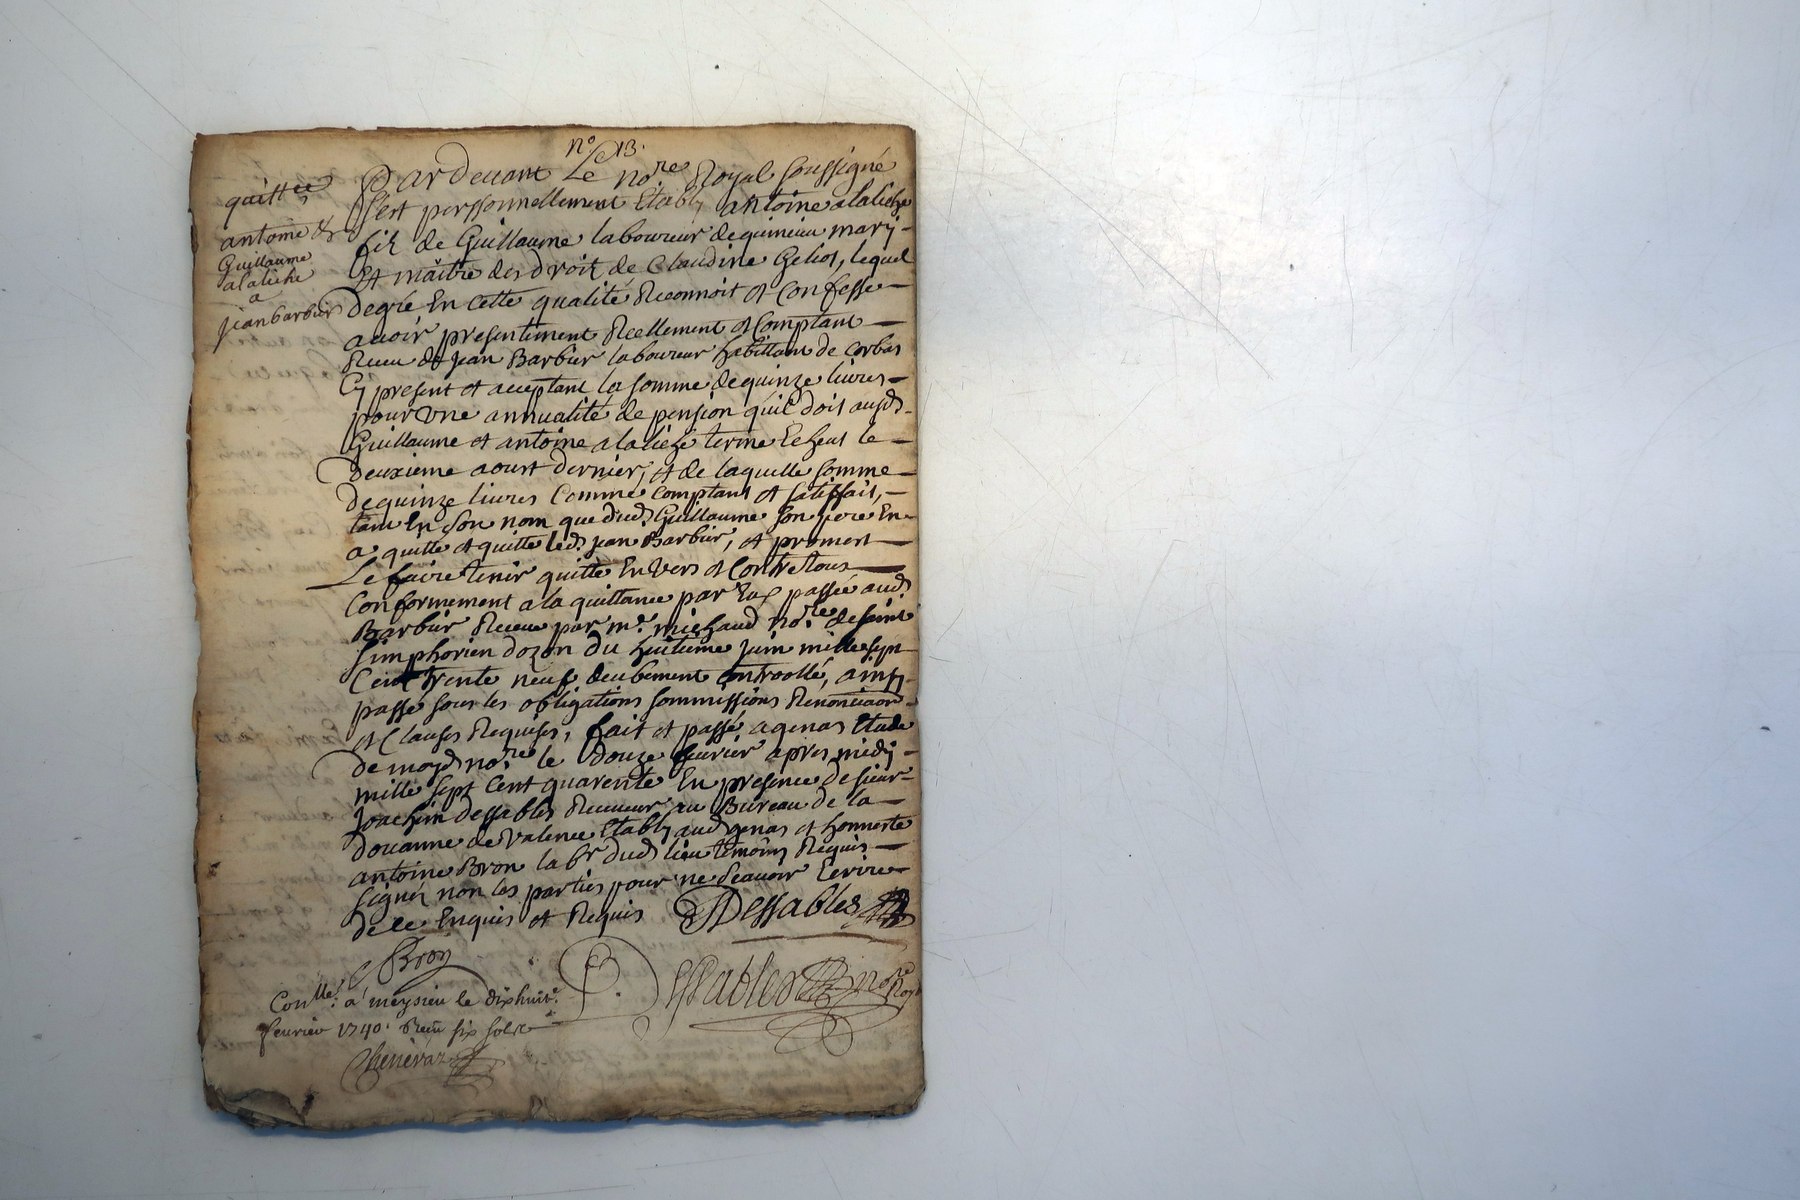 n.º 13.
quittce
antoine &
Guillaume
alaliche
a
jean barbier
Pardevant Le no.re Royal soussigné
s'est personnellement Etably antoine alaliche
fil de Guillaume laboureur de quineiu mary
et maitre des droit de Claudine Geliot, lequel
degré En cette qualité Reconnoit et Confesse
avoir presentement Reellement et Comptant
Receu de Jean Barbier laboureur habittant de Corbas
Cy present et acceptant la somme de quinze livres
pour une annualité de pension qu'il doit ausd.
Guillaume et antoine alaliche terme Echeut le
deuxieme aoust dernier, et de laquelle somme
de quinze livres Comme Comptant et satisfait,
tant En son nom que dud. Guillaume son pere En
a quitté et quitte led. jean Barbier, et promest
Le faire tenir quitte Envers et Contre tous
Conformement a la quittance par Eux passée aud.
Barbier Receue par m.e michaud no.re de saint
simphorien dozon du huitieme juin mille sept
Cent trente neuf deubement Controollé, ainsy
passé sous les obligations sommissions Renonciaõns
et Clauses Requises, fait et passé a genas Etude
de moyd. no.re le douze fevrier apres midy
mille sept Cent quarente En presence de sieur
Joachim dessables Receveur au Bureau de la
douanne de Valence Etably aud. genas et honneste
antoine Bron lab.r dud. lieu temoins Requis
signés non les parties pour ne Scavoir Ecrire
de ce Enquis et Requis Dessables
Bron
P. Dessables no.re Roy.
Con.lle a meysieu le dixhuit.e
fevrier 1740. Receu six sols
Chenevaz